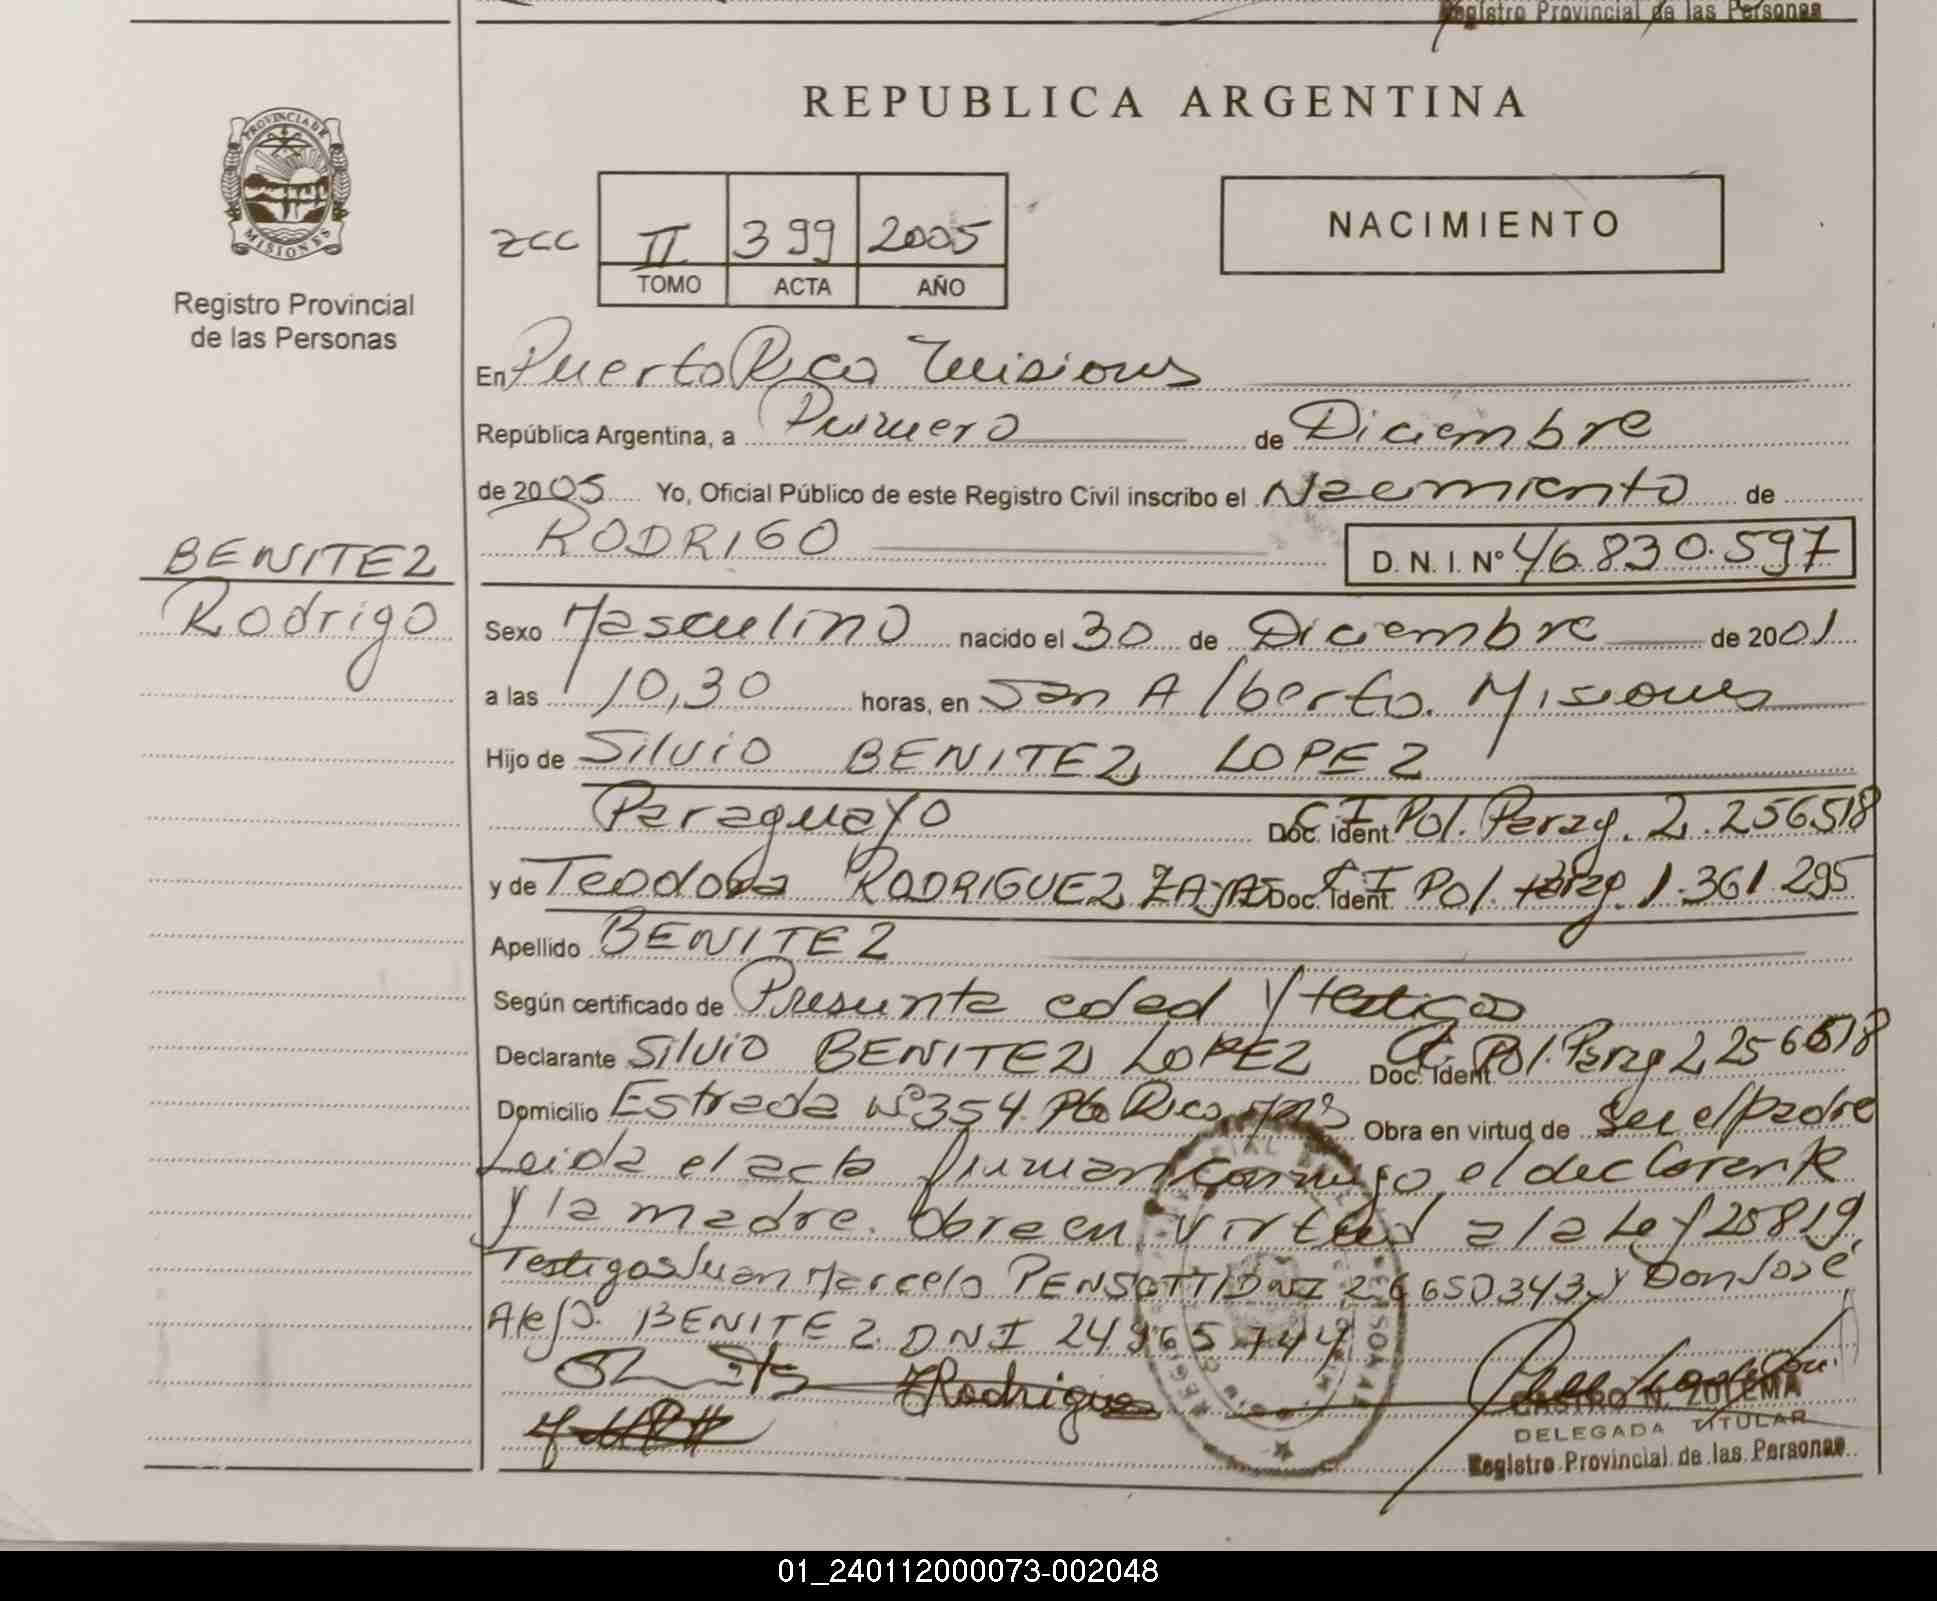 Registro Provincial de las Personas
REPUBLICA ARGENTINA
PROVINCIA DE
MISIONES
Registro Provincial
de las Personas
zcc II 399 2005
TOMO ACTA AÑO
NACIMIENTO
En Puerto Rico Misiones
República Argentina, a Primero de Diciembre
de 2005 Yo, Oficial Público de este Registro Civil inscribo el Nacimiento de
RODRIGO D. N. I. Nº 46.830.597
BENITEZ
Rodrigo
Sexo Masculino nacido el 30 de Diciembre de 2001
a las 10,30 horas, en San Alberto. Misiones
Hijo de Silvio BENITEZ LOPEZ
Paraguayo Doc. Ident. C I Pol. Parag. 2.256518
y de Teodora RODRIGUEZ ZAYAS Doc. Ident. C I Pol. Parag. 1.361.295
Apellido BENITEZ
Según certificado de Presunta edad y testigos
Declarante Silvio BENITEZ LOPEZ Doc. Ident. CI. Pol. Parag 2,256518
Domicilio Estrada Nº 354. Pto Rico Mnes Obra en virtud de Ser el padre
Leida el acta firman conmigo el declarante
y la madre. Obra en virtud a la Ley 25819.
Testigos Juan Marcelo PENSOTTI DNI 26650343 y Don José
Alejo. BENITEZ. DNI 24.965.744
ZRodrigue
CASTRO N. ZULEMA
DELEGADA TITULAR
Registro Provincial de las Personas
01_240112000073-002048